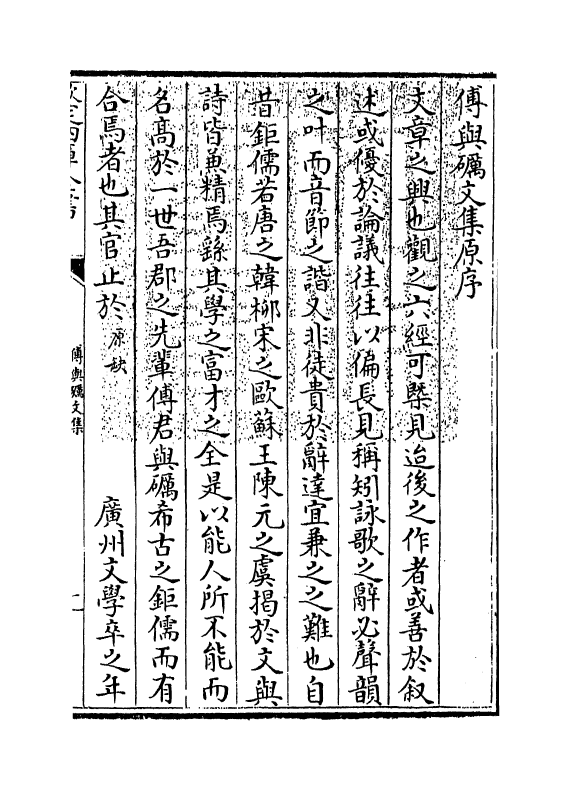 傅與礪文集原序
文章之興也觀之六經可槩見迨後之作者或善於叙
述或優於論議往往以偏長見稱矧詠歌之辭必聲韻
之叶而音節之諧又非徒貴於辭達宜兼之之難也自
昔鉅儒若唐之韓柳宋之歐蘇王陳元之虞掲於文與
詩皆兼精焉繇其學之富才之全是以能人所不能而
名高於一世吾郡之先輩傅君與礪希古之鉅儒而有
合焉者也其官止於原缺 廣州文學卒之年
傅與礪文集